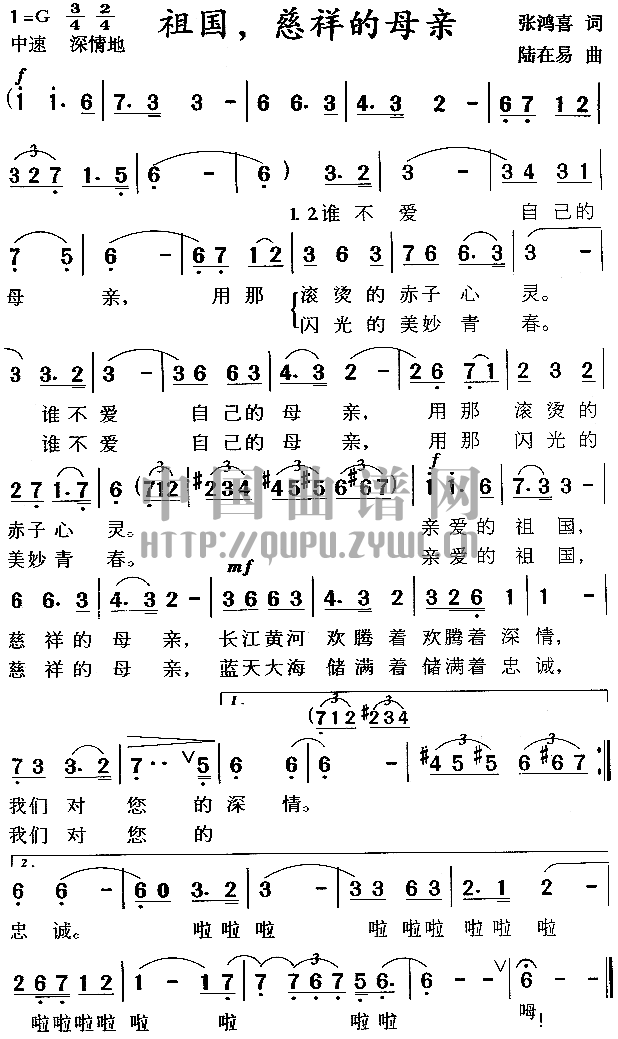 1=G 3/4 2/4 祖国，慈祥的母亲 张鸿喜 词
中速 深情地 陆在易 曲
f
(i i. 6 | 7. 3 3 - | 6 6. 3 | 4. 3 2 - | 6 7 1 2 |
3 2 7 1. 5 | 6 - | 6 - ) 3. 2 | 3 - | 3 4 3 1 |
1.2谁不 爱 自己的
7 5 | 6 - | 6 7 1 2 | 3 6 3 | 7 6 6. 3 | 3 - |
母 亲， 用那 滚烫的赤子心 灵。
闪光的美妙青 春。
3 3. 2 | 3 - | 3 6 6 3 | 4. 3 2 - | 2 6 7 1 | 2 3 2 |
谁不爱 自己的母 亲， 用那 滚烫的
谁不爱 自己的母 亲， 用那 闪光的
2 7 1. 7 | 6 (7 1 2 | #2 3 4 #4 5 #5 6 #6 7) | i i. 6 | 7. 3 3 - |
中国曲谱网
赤子心 灵。 亲爱的 祖 国，
HTTP://QUPU.ZYWL.CN
美妙青 春。 亲爱的 祖 国，
mf
6 6. 3 | 4. 3 2 - | 3 6 6 3 | 4. 3 2 | 3 2 6 1 | 1 - |
慈 祥的 母 亲， 长江黄河 欢腾着 欢腾着深情，
慈 祥的 母 亲， 蓝天大海 储满着 储满着忠诚，
1.
(7 1 2 #2 3 4
7 3 3. 2 | 7 · · ∨ 5 | 6 6 | 6 - | #4 5 #5 6 #6 7 :||
我们 对 您 的深 情。
我们 对 您 的
2.
6 6 - | 6 0 3. 2 | 3 - | 3 3 6 3 | 2. 1 2 - |
忠 诚。 啦啦 啦 啦 啦啦 啦 啦 啦
2 6 7 1 2 | 1 - 1 7 | 7 7 6 7 5 6. | 6 - - ∨ | 6 - ||
啦啦啦啦 啦 啦 啦 啦 呣！